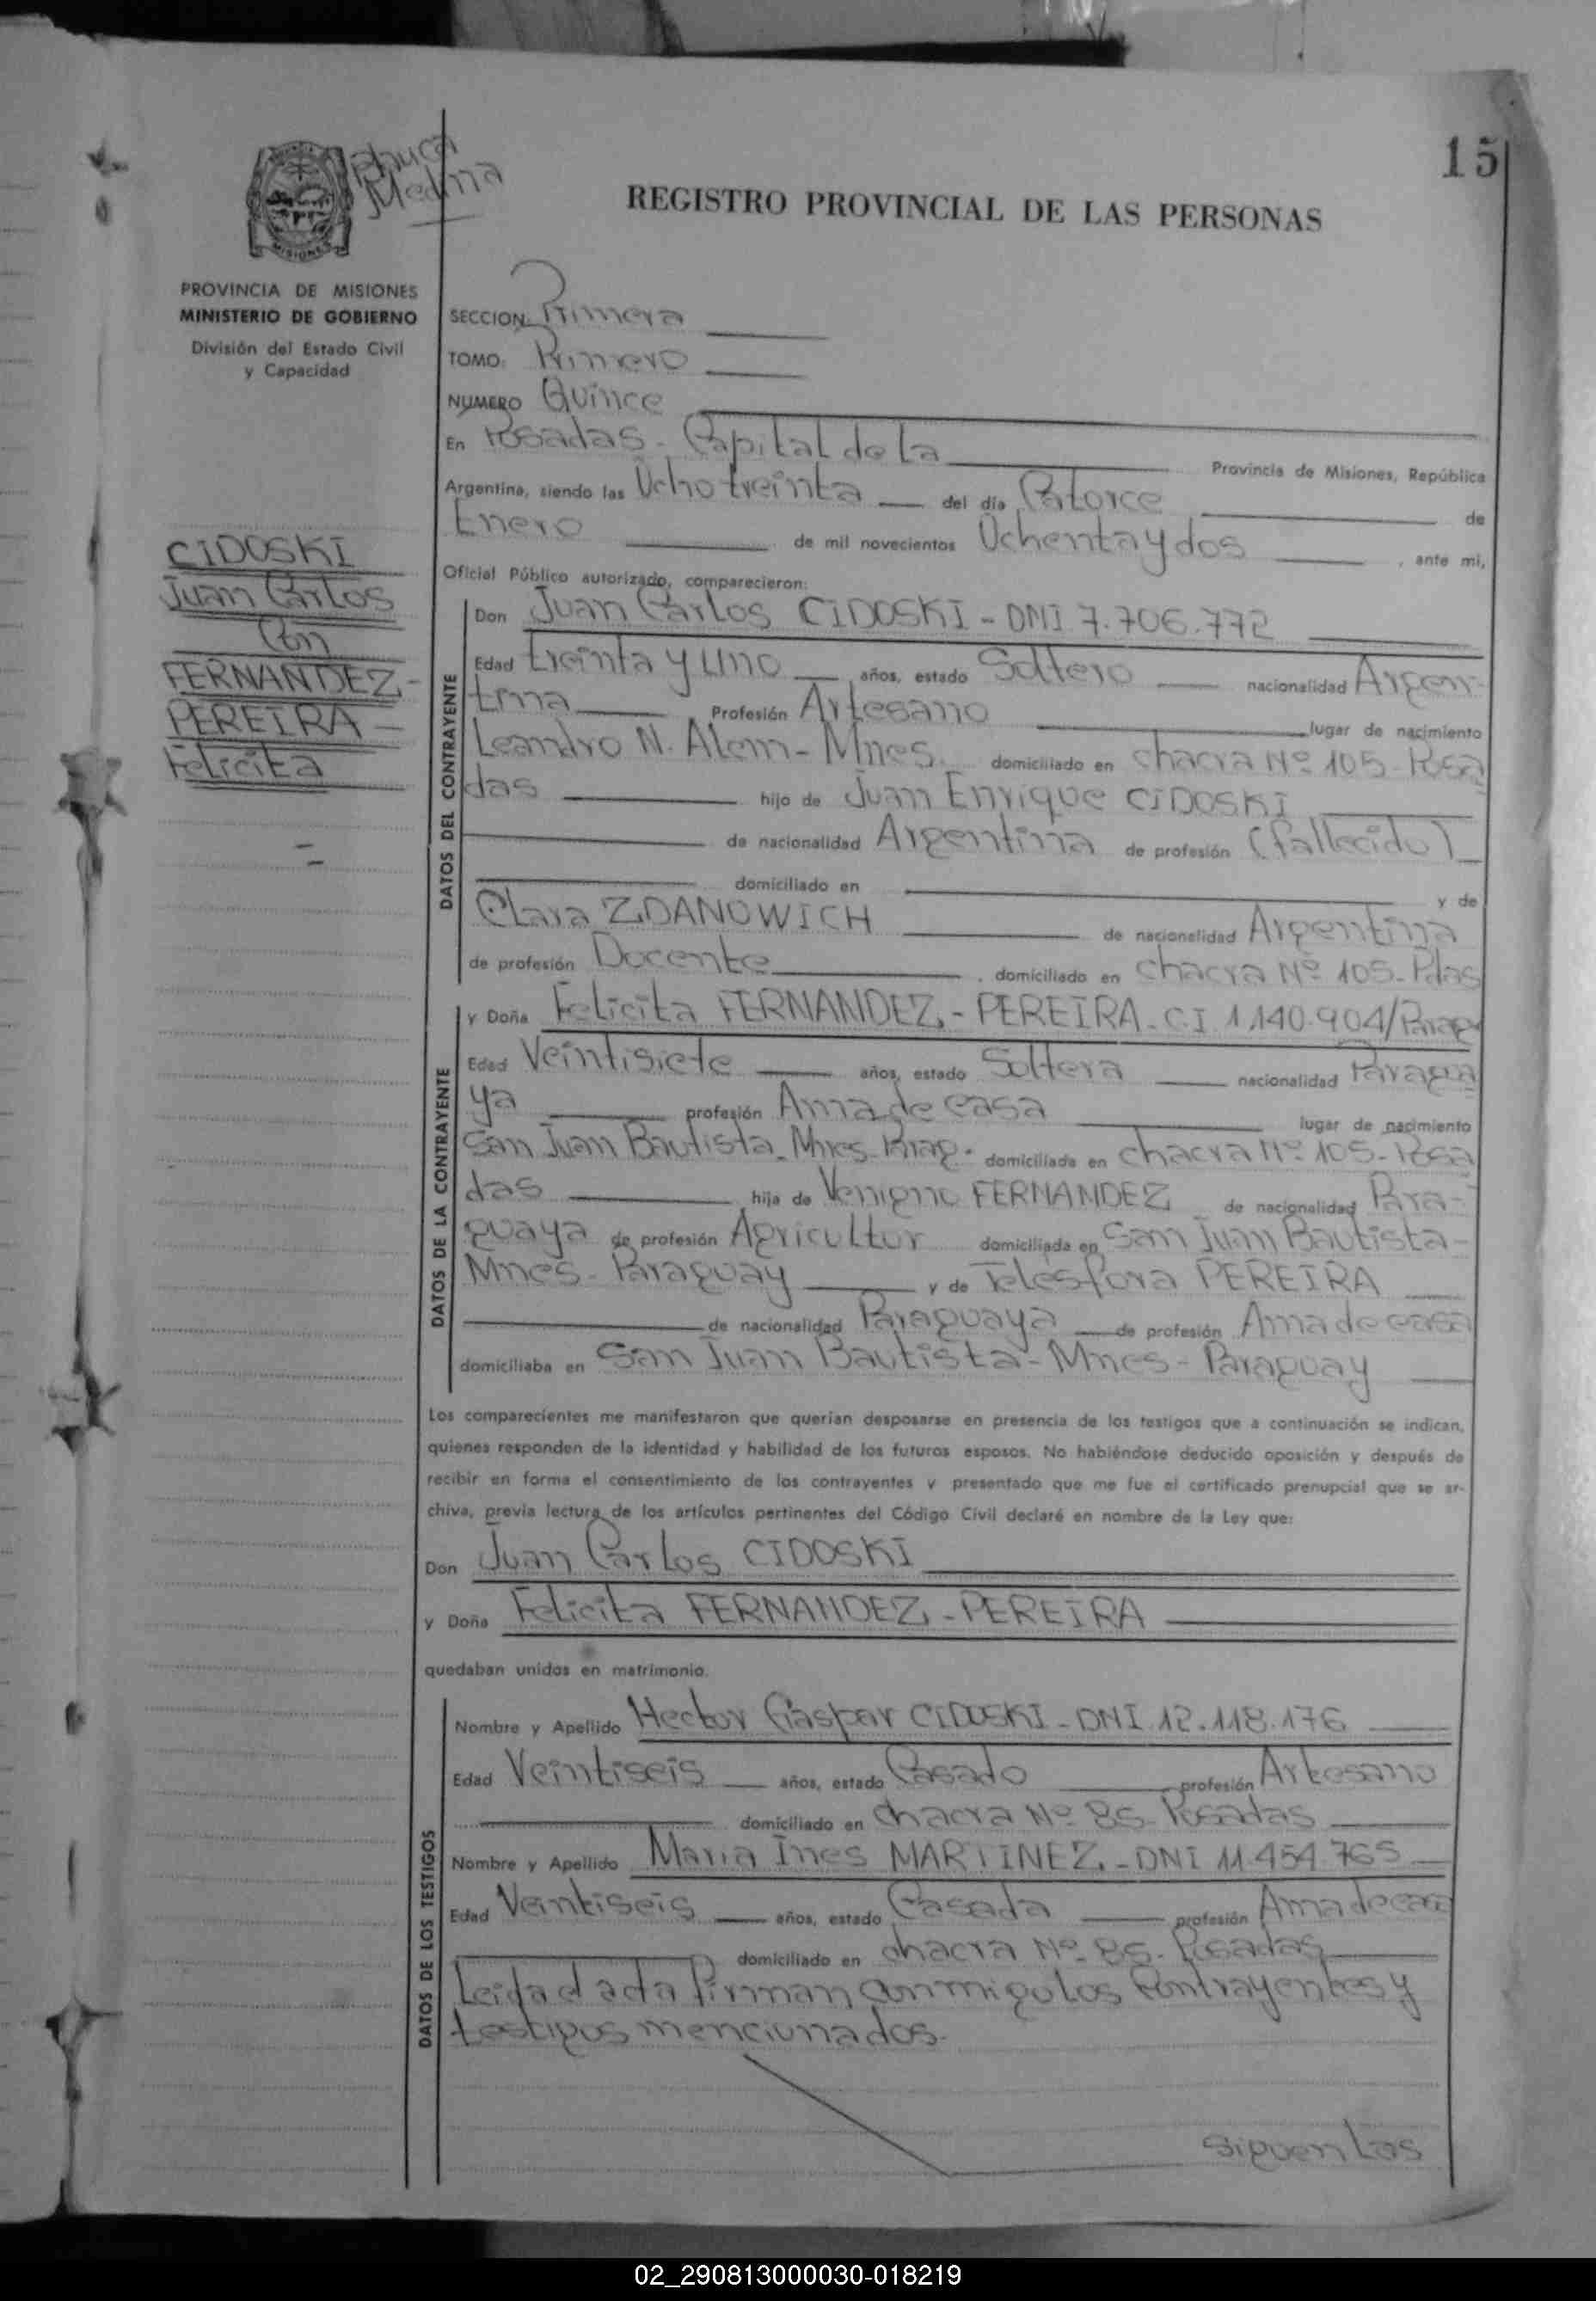 15
Medina
REGISTRO PROVINCIAL DE LAS PERSONAS
MISIONES
PROVINCIA DE MISIONES
MINISTERIO DE GOBIERNO
División del Estado Civil
y Capacidad
CIDOSKI
Juan Carlos
Con
FERNANDEZ-
PEREIRA-
Felicita
SECCION: Primera
TOMO: Primero
NUMERO Quince
En Posadas - Capital de La Provincia de Misiones, República
Argentina, siendo las Ocho treinta del día Catorce de
Enero de mil novecientos Ochenta y dos, ante mi,
Oficial Público autorizado, comparecieron:
DATOS DEL CONTRAYENTE
Don Juan Carlos CIDOSKI - DNI 7.706.772
Edad treinta y uno años, estado Soltero nacionalidad Argen-
tina Profesión Artesano lugar de nacimiento
Leandro N. Alem - Mnes. domiciliado en chacra Nº 105 - Posa
das hijo de Juan Enrique CIDOSKI
de nacionalidad Argentina de profesión (fallecido)
domiciliado en y de
Clara ZDANOWICH de nacionalidad Argentina
de profesión Docente, domiciliado en chacra Nº 105 - Pdas
DATOS DE LA CONTRAYENTE
y Doña Felicita FERNANDEZ - PEREIRA - C.I 1.140.904/Parag
Edad Veintisiete años, estado Soltera nacionalidad Paragua
ya profesión Ama de casa lugar de nacimiento
San Juan Bautista - Mnes - Parag. domiciliada en chacra Nº 105 - Posa
das hija de Venigno FERNANDEZ de nacionalidad Para-
guaya de profesión Agricultor domiciliada en San Juan Bautista -
Mnes - Paraguay y de Telesfora PEREIRA
de nacionalidad Paraguaya de profesión Ama de casa
domiciliaba en San Juan Bautista - Mnes - Paraguay
Los comparecientes me manifestaron que querían desposarse en presencia de los testigos que a continuación se indican,
quienes responden de la identidad y habilidad de los futuros esposos. No habiéndose deducido oposición y después de
recibir en forma el consentimiento de los contrayentes y presentado que me fue el certificado prenupcial que se ar-
chiva, previa lectura de los artículos pertinentes del Código Civil declaré en nombre de la Ley que:
Don Juan Carlos CIDOSKI
y Doña Felicita FERNANDEZ - PEREIRA
quedaban unidos en matrimonio.
DATOS DE LOS TESTIGOS
Nombre y Apellido Hector Gaspar CIDOSKI - DNI 12.118.176
Edad Veintiseis años, estado Casado profesión Artesano
domiciliado en chacra Nº 85 - Posadas
Nombre y Apellido Maria Ines MARTINEZ - DNI 11.454.765
Edad Veintiseis años, estado Casada profesión Ama de casa
domiciliado en chacra Nº 85 - Posadas
Leida el acta firman conmigo los Contrayentes y
testigos mencionados.
siguen las
02_290813000030-018219